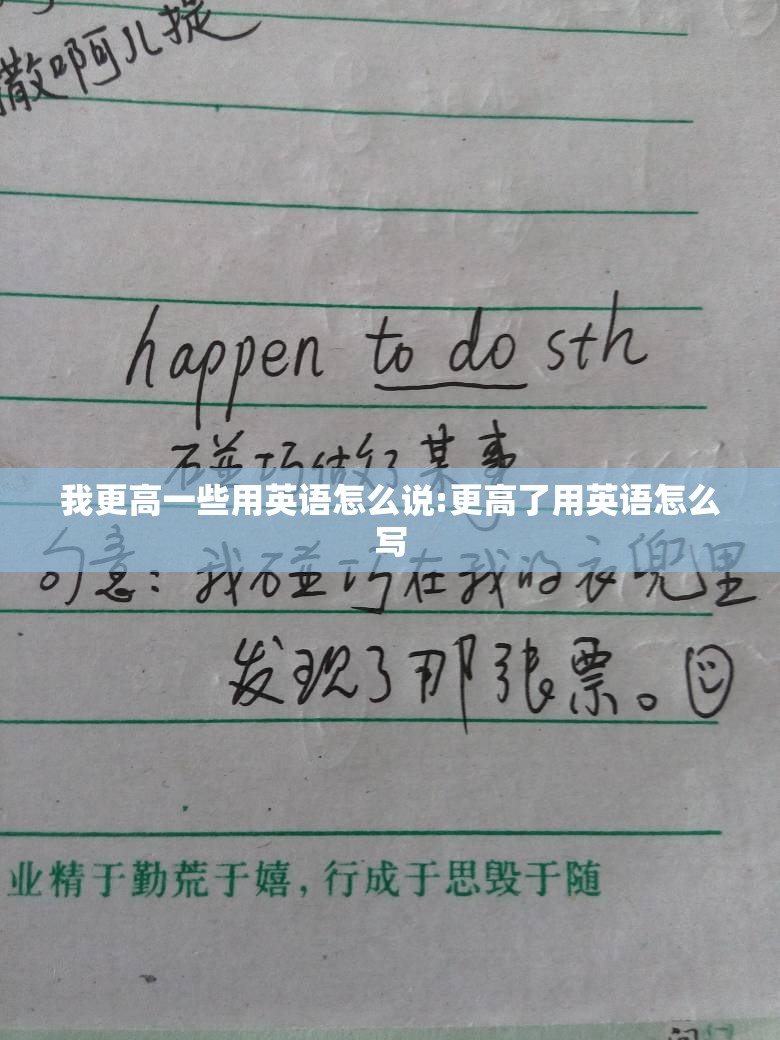 撒啊儿提
happen to do sth
碰巧做了某事
我更高一些用英语怎么说:更高了用英语怎么
写
句意：我碰巧在我的衣兜里
发现了那张票。
业精于勤荒于嬉，行成于思毁于随